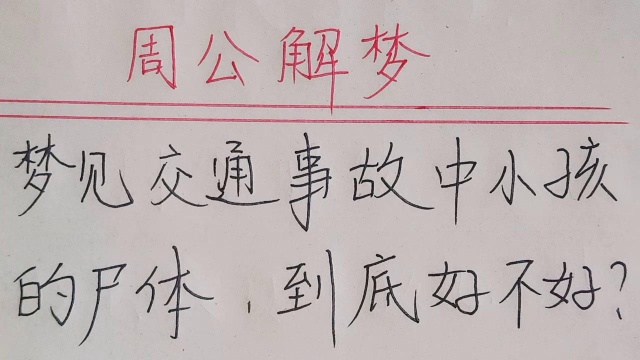 周公解梦
梦见交通事故中小孩
的尸体，到底好不好？